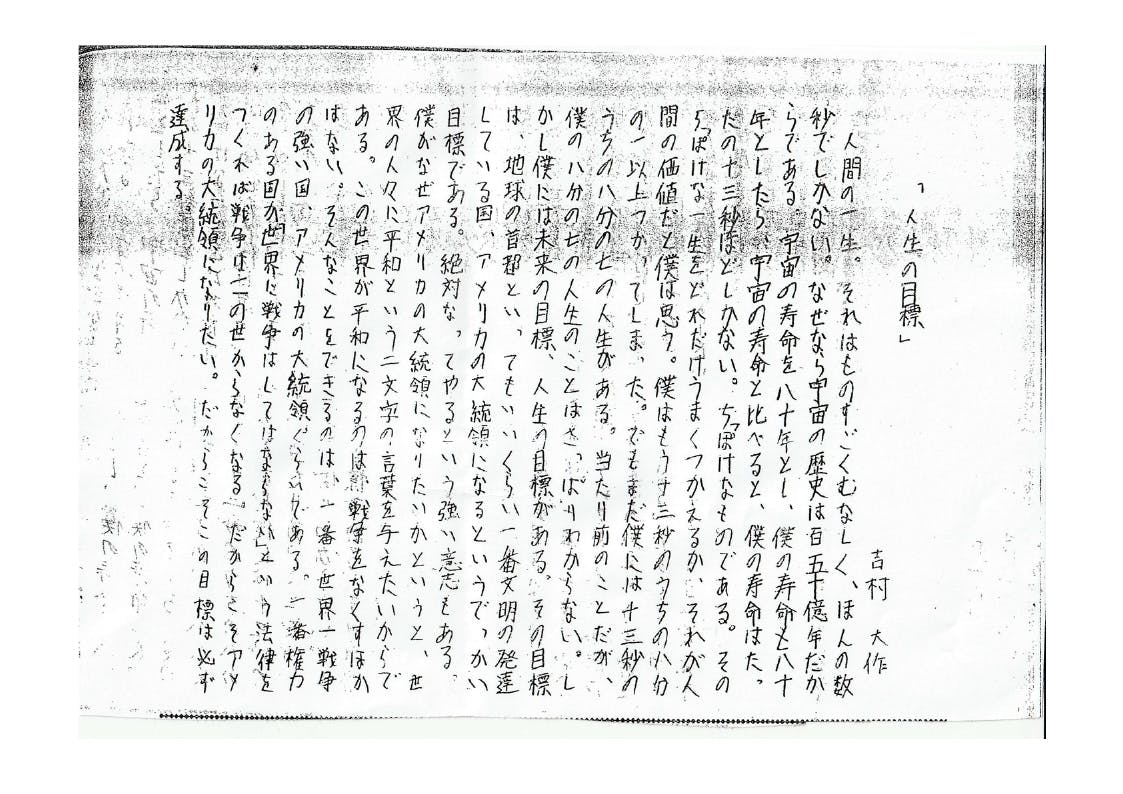 「人生の目標」
吉村 大作
人間の一生。それはものすごくむなしく、ほんの数
秒でしかない。なぜなら宇宙の歴史は百五十億年だか
らである。宇宙の寿命を八十年とし、僕の寿命も八十
年としたら、宇宙の寿命と比べると、僕の寿命はたっ
たの十三秒ほどしかない。ちっぽけなものである。その
ちっぽけな一生をどれだけうまくつかえるか、それが人
間の価値だと僕は思う。僕はもう十三秒のうちの八分
の一以上つかってしまった。でもまだ僕には十三秒の
うちの八分の七の人生がある。当たり前のことだが、
僕の八分の七の人生のことはさっぱりわからない。し
かし僕には未来の目標、人生の目標がある。その目標
は、地球の首都といってもいいくらい一番文明の発達
している国、アメリカの大統領になるというでっかい
目標である。絶対なってやるという強い意志もある。
僕がなぜアメリカの大統領になりたいかというと、世
界の人々に平和という二文字の言葉を与えたいからで
ある。この世界が平和になるのは戦争をなくすほか
はない。そんなことをできるのは 一番、世界一戦争
の強い国、アメリカの大統領ぐらいである。一番権力
のある国が「世界に戦争はしてはならない」という法律を
つくれば戦争は二の世からなくなる。だからこそアメ
リカの大統領になりたい。だからこそこの目標は必ず
達成する。